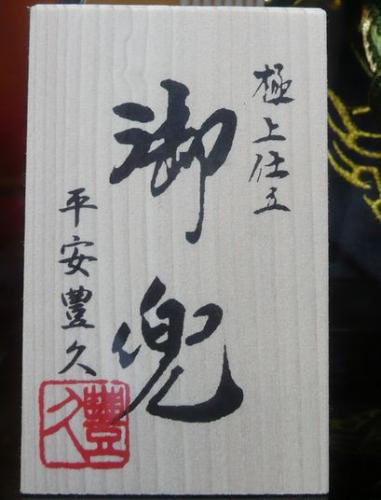 極上仕立
御兜
平安豊久
豊久